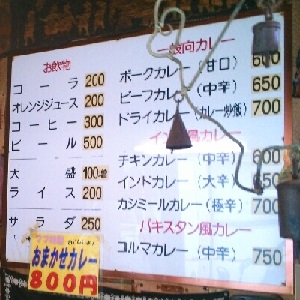 お飲物
コーラ 200
オレンジジュース 200
コーヒー 300
ビール 500
大盛 100増
ライス 200
サラダ 250
おまかせカレー
800円
一般向カレー
ポークカレー（甘口） 600
ビーフカレー（中辛）
ドライカレー（カレー炒飯） 700
風カレー
チキンカレー（中辛） 600
インドカレー（大辛） 650
カシミールカレー（極辛） 700
パキスタン風カレー
コルマカレー（中辛） 750